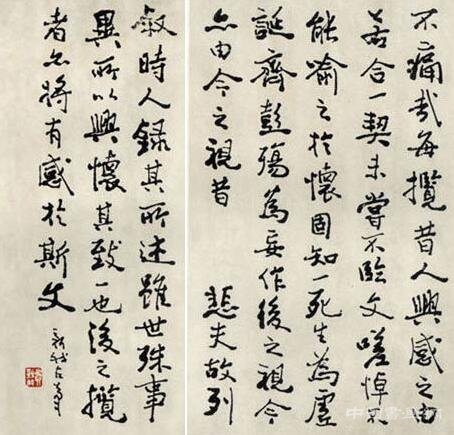 不痛哉每攬昔人興感之由
若合一契未嘗不臨文嗟悼不
能喻之於懷固知一死生為虛
誕齊彭殤為妄作後之視今
亦由今之視昔 悲夫故列
敘時人錄其所述雖世殊事
異所以興懷其致一也後之攬
者亦將有感於斯文